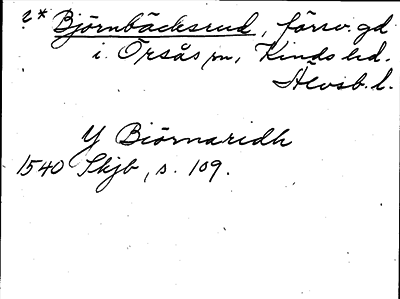 ?* Björnbäcksrud, försv. gd
i Örsås sn, Kinds hd.
Älvsb. l.
Y Biörnaridh
1540 Skjb, s. 109.